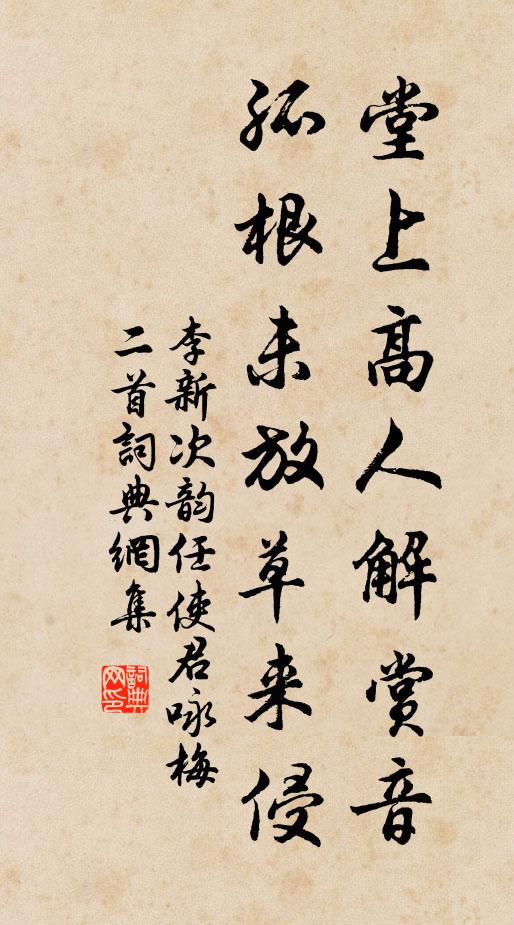 堂上高人解賞音
孤根未放草来侵
李新次韵任使君咏梅
二首詞典網集
詞典
网印